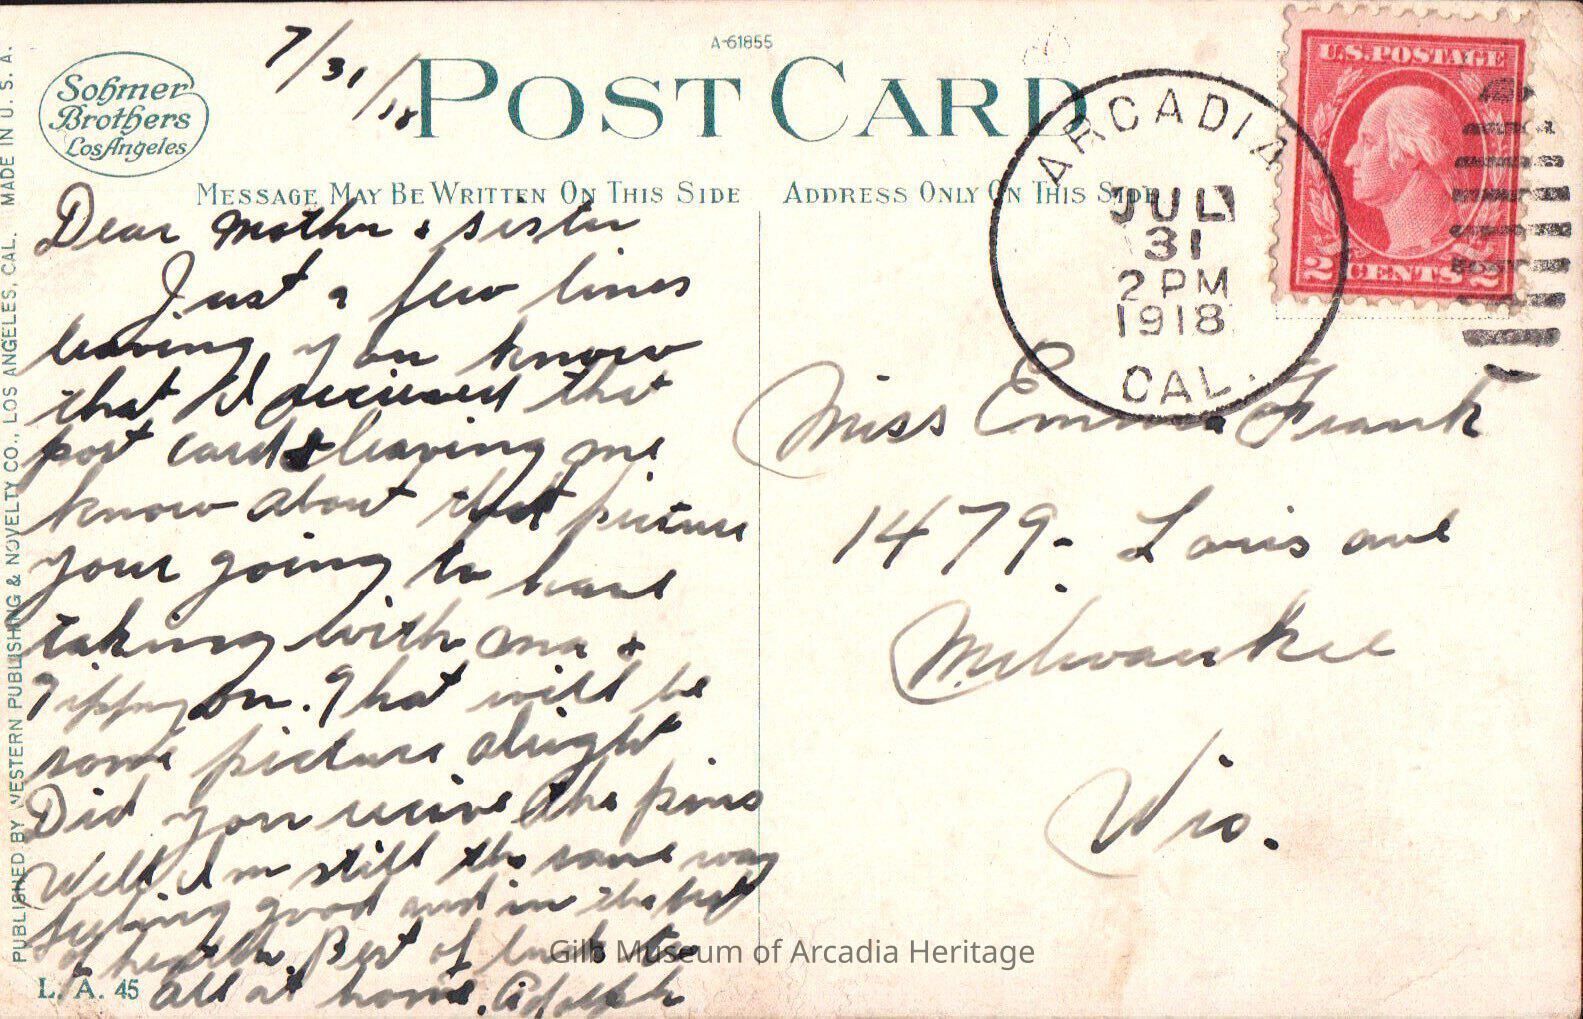 7/31/18
A-61855
Sohmer
Brothers
Los Angeles
POST CARD
MESSAGE MAY BE WRITTEN ON THIS SIDE
ADDRESS ONLY ON THIS SIDE
PUBLISHED BY WESTERN PUBLISHING & NOVELTY CO., LOS ANGELES, CAL. MADE IN U. S. A.
U.S. POSTAGE
2 CENTS 2
ARCADIA
JUL
31
2 PM
1918
CAL.
Dear Mother & sister
Just a few lines
leaving you know
that I recieved that
post card & leaving me
know about that picture
your going to have
taking with ma &
on. That will be
some picture alright
Did you receive the pins
Well I'm still the same way
feeling good and in the best
of health. Best of luck to
all at home. Adolph
L. A. 45
Miss Emma Frank
1479- Louis ave
Milwaukee
Wis.
Gilb Museum of Arcadia Heritage